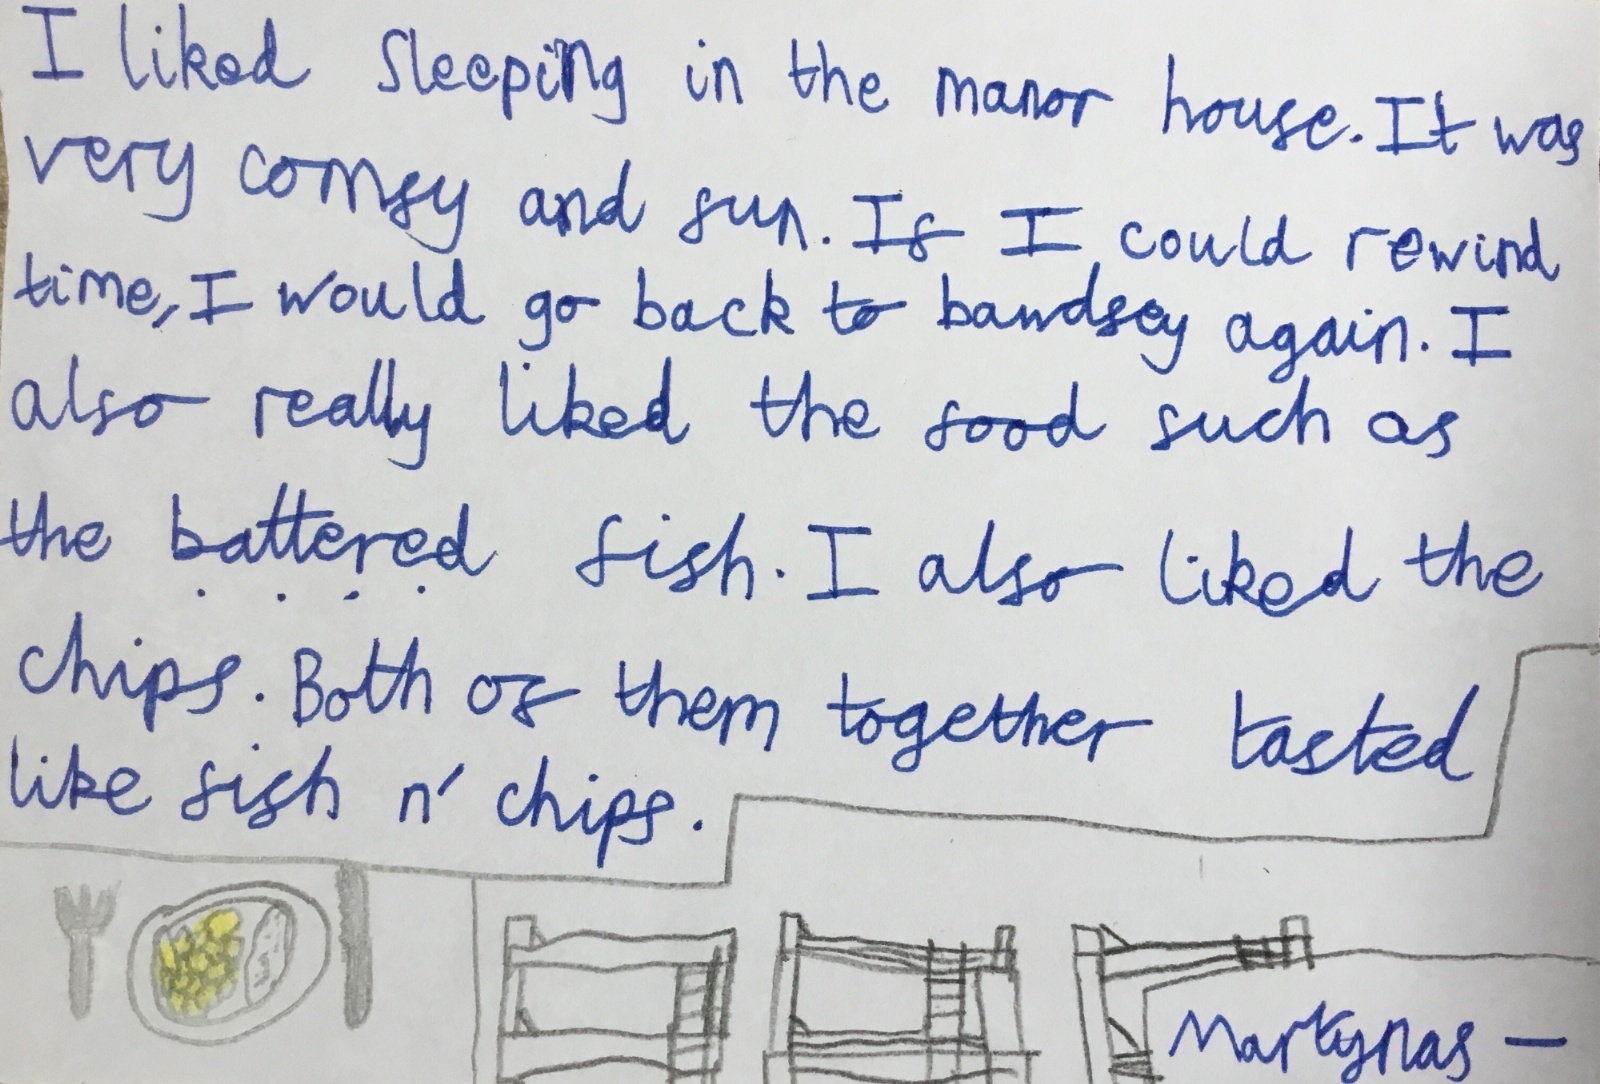 I liked sleeping in the manor house. It was
very comfy and fun. If I could rewind
time, I would go back to bawdsey again. I
also really liked the food such as
the battered fish. I also liked the
chips. Both of them together tasted
like fish n' chips.
Martynas —